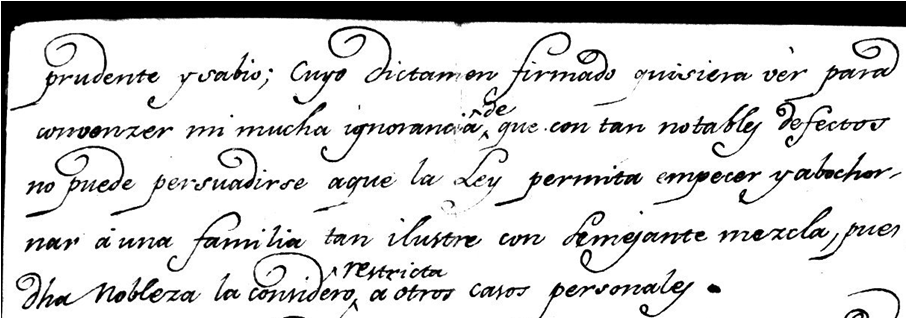 prudente y sabio; Cuyo dictamen firmado quisiera vèr para
convenzer mi mucha ignorancia de que con tan notables defectos
no puede persuadirse aque la Ley permita empecer y abochor-
nar á una familia tan ilustre con semejante mezcla, pues
dha Nobleza la considero restricta a otros casos personales.